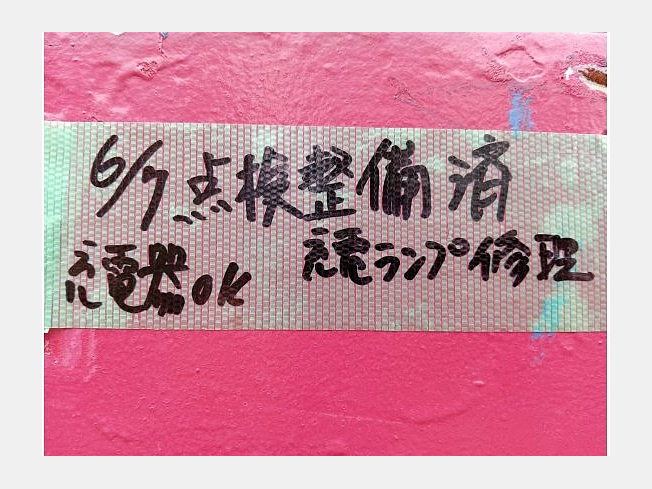 6/7点検整備済
充電器OK
充電ランプ修理